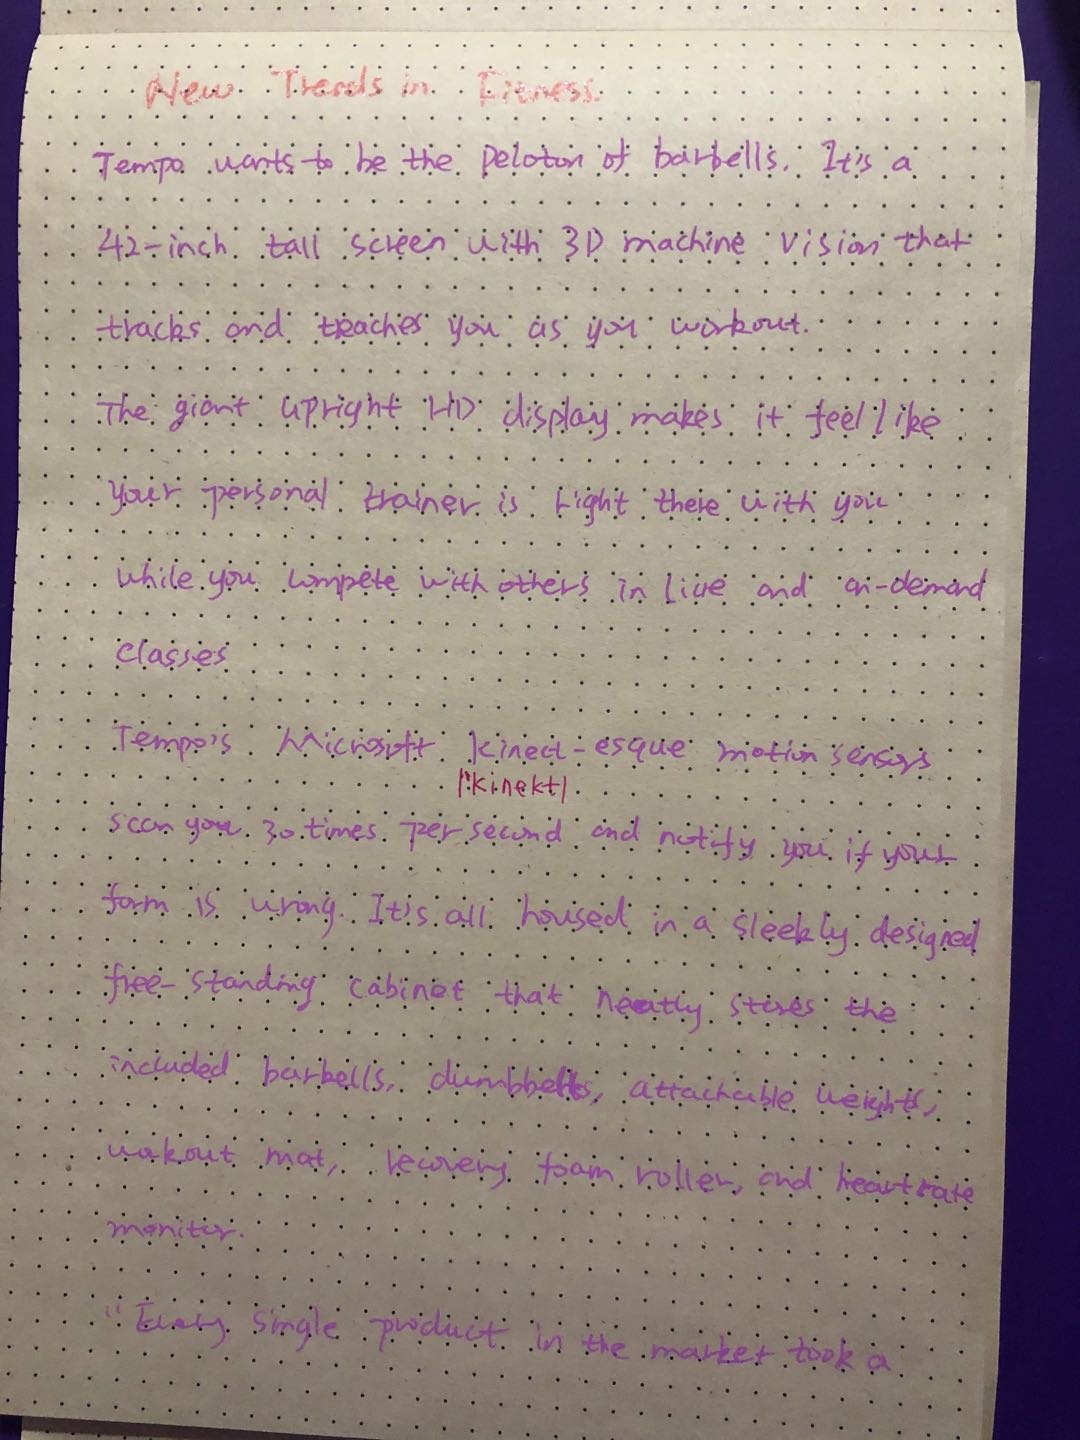 New Trends in Fitness.
Tempo wants to be the peloton of barbells. It's a
42-inch tall screen with 3D machine vision that
tracks and teaches you as you workout.
The giant upright HD display makes it feel like
your personal trainer is right there with you
while you compete with others in live and on-demand
classes
Tempo's Microsoft kinect-esque motion sensors
|'kinekt|
scan you 30 times per second and notify you if your
form is wrong. It's all housed in a sleekly designed
free-standing cabinet that neatly stores the
included barbells, dumbbells, attachable weights,
workout mat, recovery foam roller, and heart rate
monitor.
"Every single product in the market took a